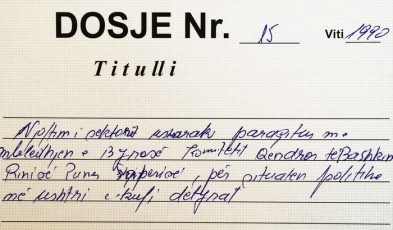 DOSJE Nr. 15 Viti 1990
Titulli
Njoftimi i sektorit ushtarak paraqitur në
mbledhjen e Byrosë Komitetit Qendror të Bashkim
Rinisë Punës Shqipërisë, për situaten politike
në ushtri e kufi detyrat